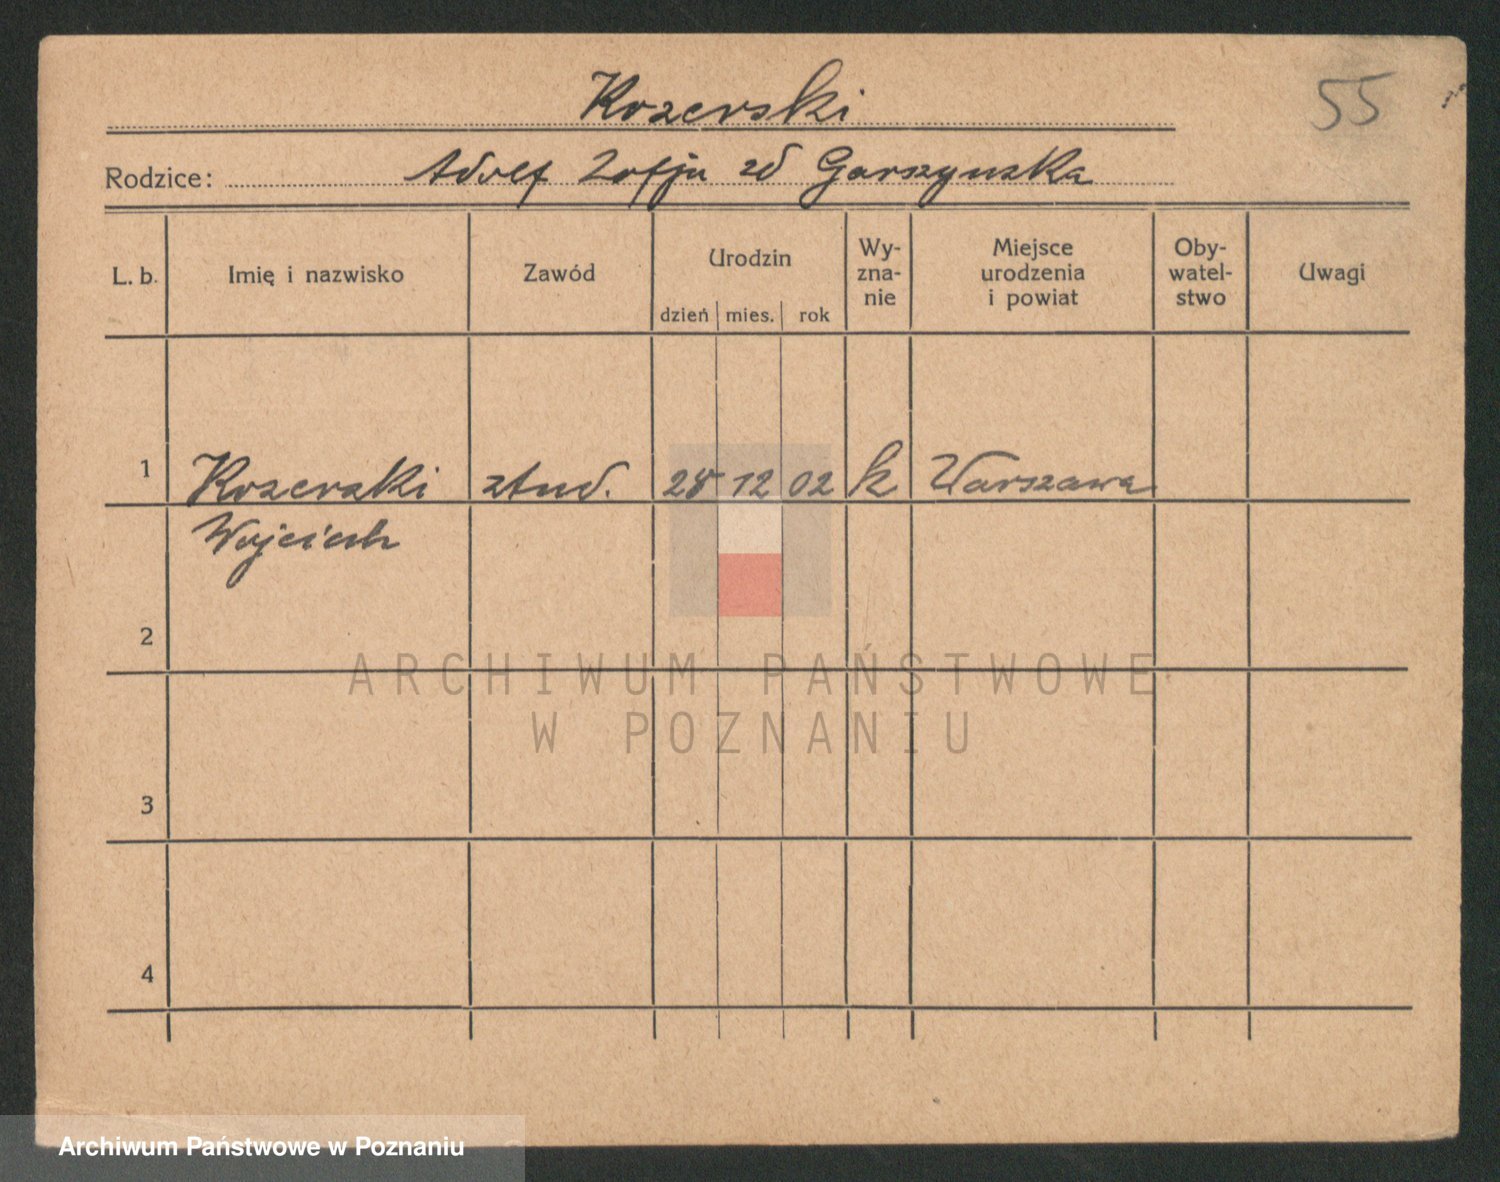 Kozerski
55
Rodzice: Adolf Zofja zd Garszynska
L. b.
Imię i nazwisko
Zawód
Urodzin
dzień mies. rok
Wy-
zna-
nie
Miejsce
urodzenia
i powiat
Oby-
watel-
stwo
Uwagi
1 Kozerski stud. 28 12 02 k Warszawa
Wojciech
2
ARCHIWUM PAŃSTWOWE
W POZNANIU
3
4
Archiwum Państwowe w Poznaniu